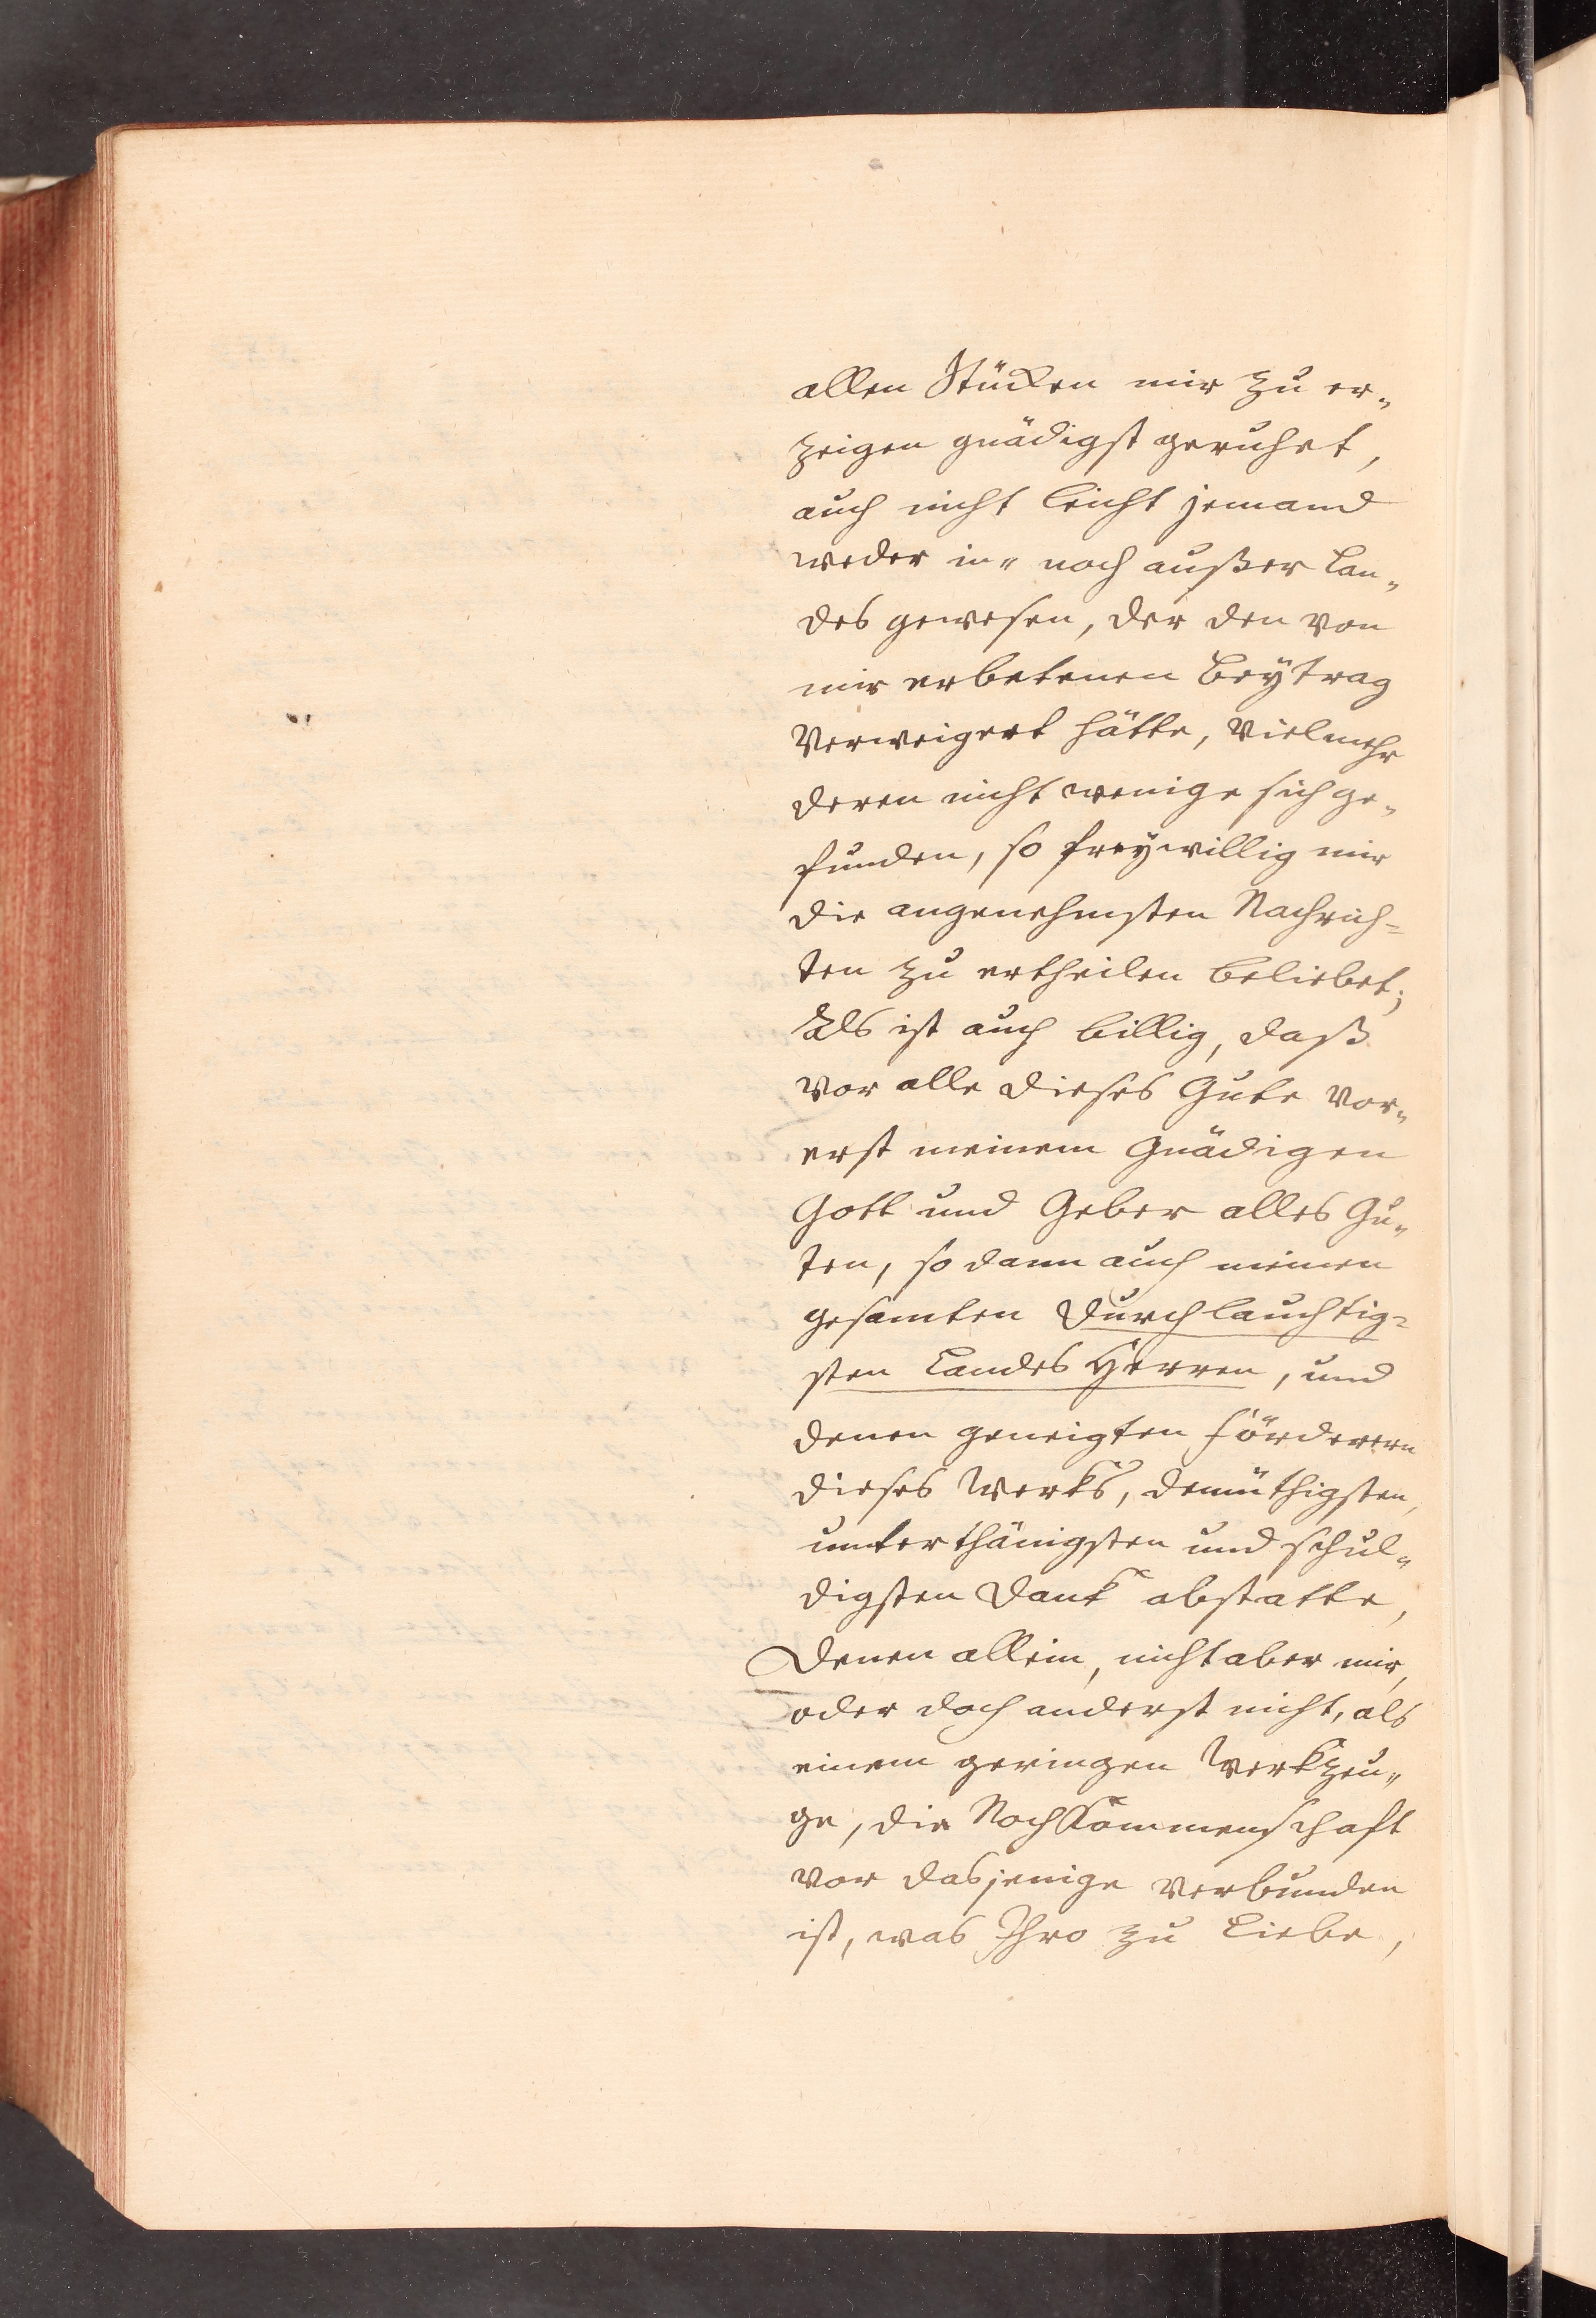 allen Stücken mir zu er„
zeigen gnädigst geruhet,
auch nicht leicht jemand
weder in„ noch außer Lan„
des gewesen, der den von
mir erbetenen Beÿtrag
verweigert hätte, vielmehr
deren nicht wenige sich ge„
funden, so freÿwillig mir
die angenehmsten Nachrich=
ten zu ertheilen beliebet;
Als ist auch billig, daß
vor alle dieses Gute vor„
erst meinem Gnädigen
Gott und Geber alles Gu„
ten, so dann auch meinen
gesamten Durchlauchtig=
sten Landes Herren, und
denen geneigten Förderern
dieses Werks, demüthigsten,
unterthänigsten und schul„
digsten Dank abstatte,
Denen allein, nicht aber mir,
oder doch anderst nicht, als
einem geringen Werkzeu„
ge, die Nachkommenschaft
vor dasjenige verbunden
ist, was Ihro zu Liebe,